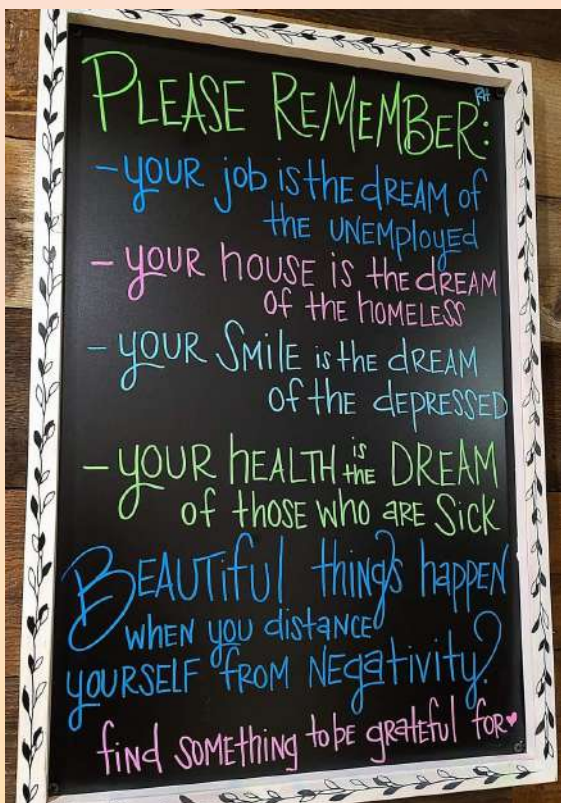 RH
PLEASE REMEMBER:
- YOUR job is the dREAM of
the UNEMployed
- YOUR house is the dREAM
of the homeless
- YOUR SMILE is the dREAM
of the dEPRESSED
- YOUR hEALTH is the DREAM
of those who ARE Sick
BEAUTiful things happen
WHEN you distance
yourself from NEgativity?
find something to be grateful for♥